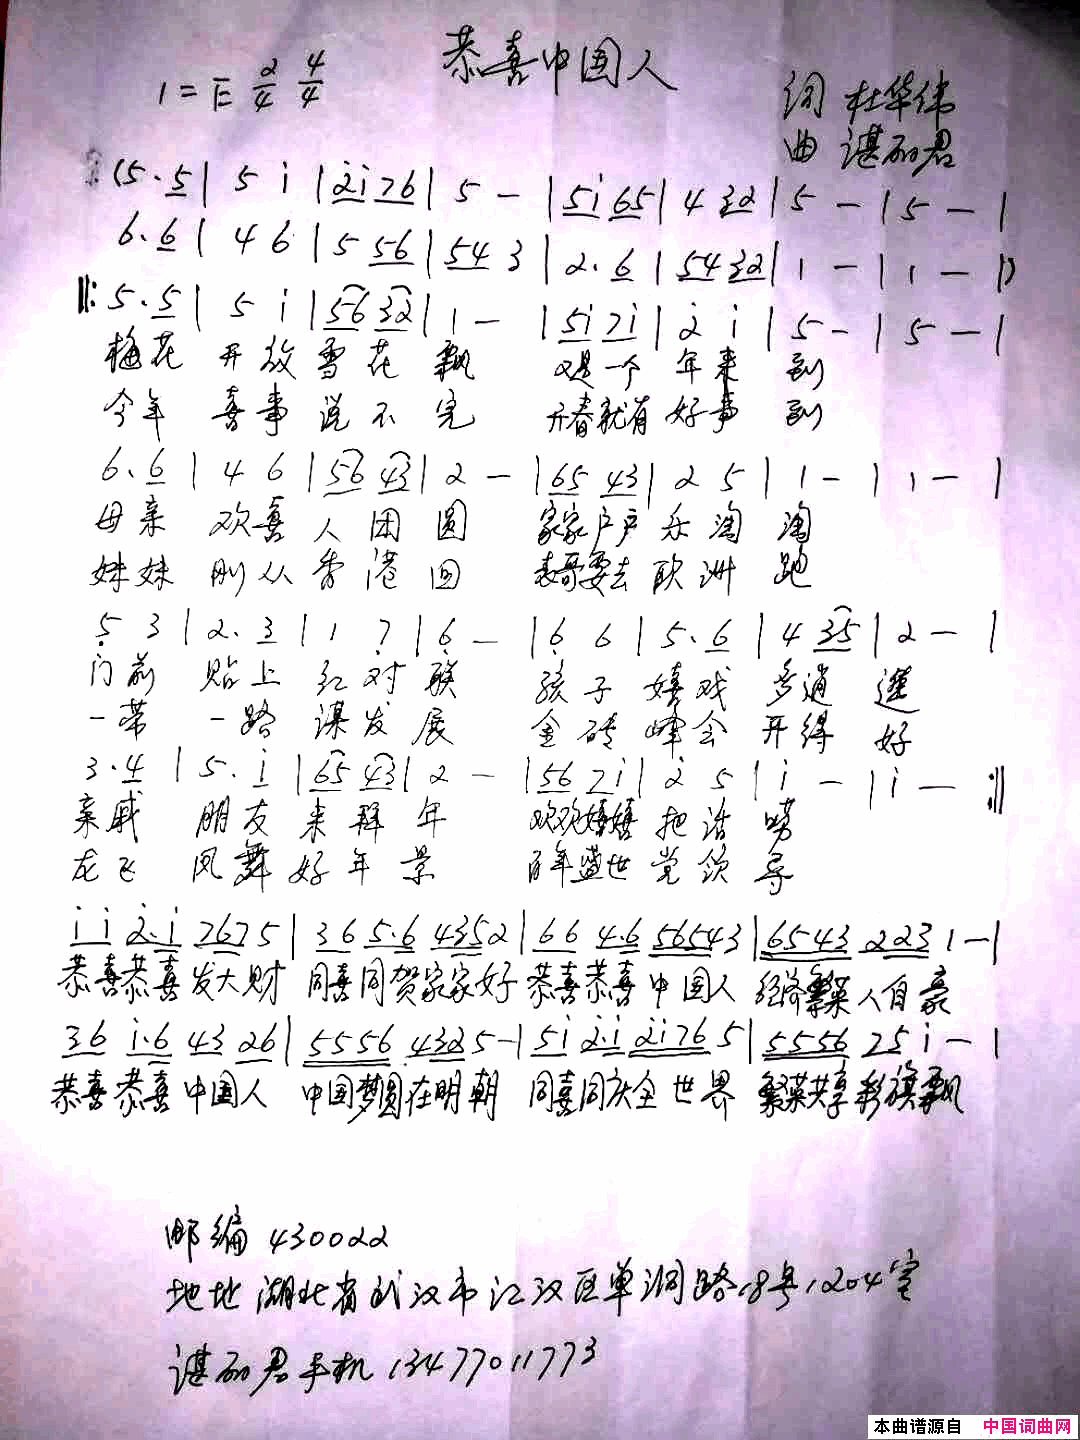 恭喜中国人
1=E 2/4 4/4
词 杜华伟
曲 谌丽君
(5·5| 5 i |2i76| 5 — |5i65| 4 32| 5 — | 5 — |
6·6| 4 6 | 5 56 | 54 3 | 2·6 | 5432 | 1 — | 1 — |)
‖: 5·5| 5 i |5632| 1 — |5i7i| 2 i | 5 — | 5 — |
梅花 开放雪花 飘 又是一个 年来 到
今年 喜事说不 完 开春就有 好事 到
6·6 | 4 6 | 56 43 | 2 — | 65 43 | 2 5 | 1 — | 1 — |
母亲 欢喜人团 圆 家家户户 乐淘 淘
妹妹 刚从香港 回 表哥要去 欧洲 跑
5 3 | 2·3 | 1 7 | 6 — | 6 6 | 5·6 | 4 35 | 2 — |
门前 贴上 红对 联 孩子 嬉戏 多逍 遥
一带 一路 谋发 展 金砖 峰会 开得 好
3·4 | 5·i | 65 43 | 2 — | 56 7i | 2 5 | i — | i — :‖
亲戚 朋友 来拜 年 欢欢嬉嬉 把话 唠
龙飞 凤舞 好年 景 百年盛世 党领 导
i i 2·i 7675 | 36 5·6 4352 | 66 4·6 56543 | 6543 223 1 — |
恭喜恭喜发大财 同喜同贺家家好 恭喜恭喜中国人 经济繁荣人自豪
36 i·6 43 26 | 5556 4325 — | 5i 2·i 2i76 5 | 5556 75 i — |
恭喜恭喜中国人 中国梦圆在明朝 同喜同庆全世界 繁荣共享彩旗飘
邮编 430022
地址 湖北省武汉市江汉区单洞路18号1204室
谌丽君手机 13477011773
本曲谱源自 中国词曲网